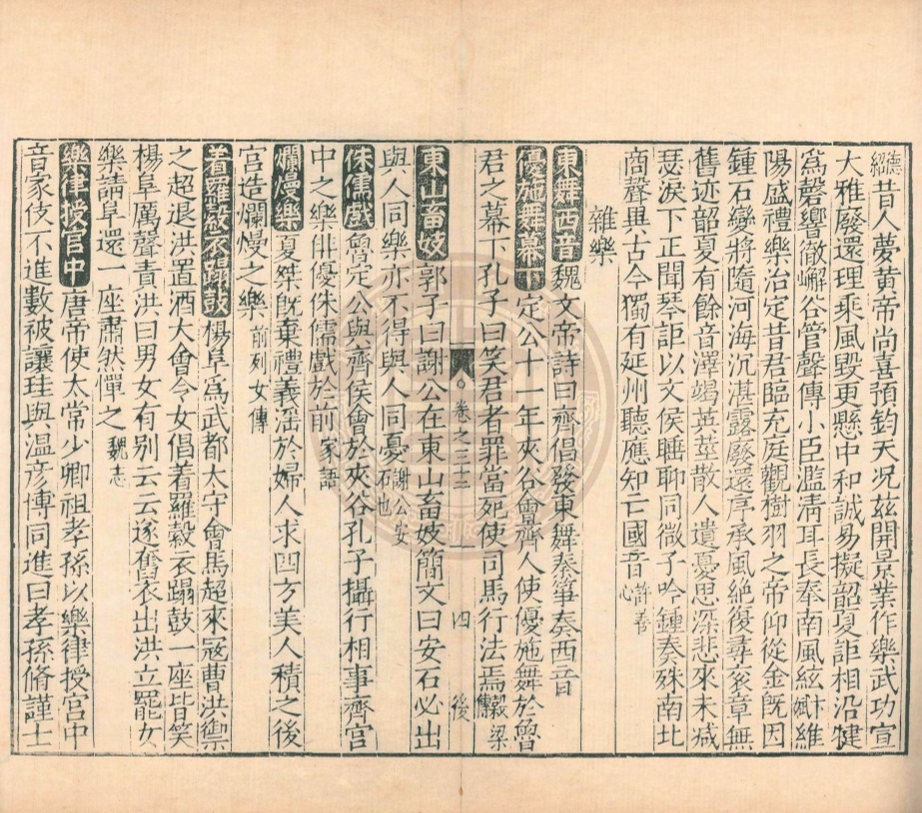 德紹 昔人夢黃帝尚喜預鈞天况茲開景業作樂武功宣
大雅廢還理乘風毀更懸中和誠易擬韶夏詎相沿犍
爲磬響徹嶰谷管聲傳小臣濫淸耳長奉南風絃 卞斌 維
陽盛禮樂治定昔君臨充庭觀樹羽之帝仰從金旣因
鍾石變將隨河海沉湛露廢還序承風絶復尋衮章無
舊迹韶夏有餘音澤竭英莖散人遺憂思深悲來未减
瑟淚下正聞琴詎以文侯睡聊同微子吟鍾奏殊南北
商聲異古今獨有延州聽應知亡國音 許善心
雜樂
東舞西音 魏文帝詩曰齊倡發東舞秦箏奏西音
優施舞幕下 定公十一年夾谷會齊人使優施舞於魯
君之幕下孔子曰笑君者罪當死使司馬行法焉 穀梁傳
東山畜妓 郭子曰謝公在東山畜妓簡文曰安石必出
與人同樂亦不得與人同憂 謝公安石也
侏儒戲 魯定公與齊侯會於夾谷孔子攝行相事齊宫
中之樂俳優侏儒戲於前 家語
爛熳樂 夏桀旣棄禮義滛於婦人求四方美人積之後
宫造爛熳之樂 前列女傳
着羅縠衣蹋鼓 楊阜爲武都太守會馬超來寇曹洪禦
之超退洪置酒大會令女倡着羅縠衣蹋鼓一座皆笑
楊阜厲聲責洪曰男女有别云云遂奮衣出洪立罷女
樂請阜還一座肅然憚之 魏志
樂律授宫中 唐帝使太常少卿祖孝孫以樂律授宫中
音家伎不進數被讓珪與温彦博同進曰孝孫脩謹士
卷之三十二
四
後